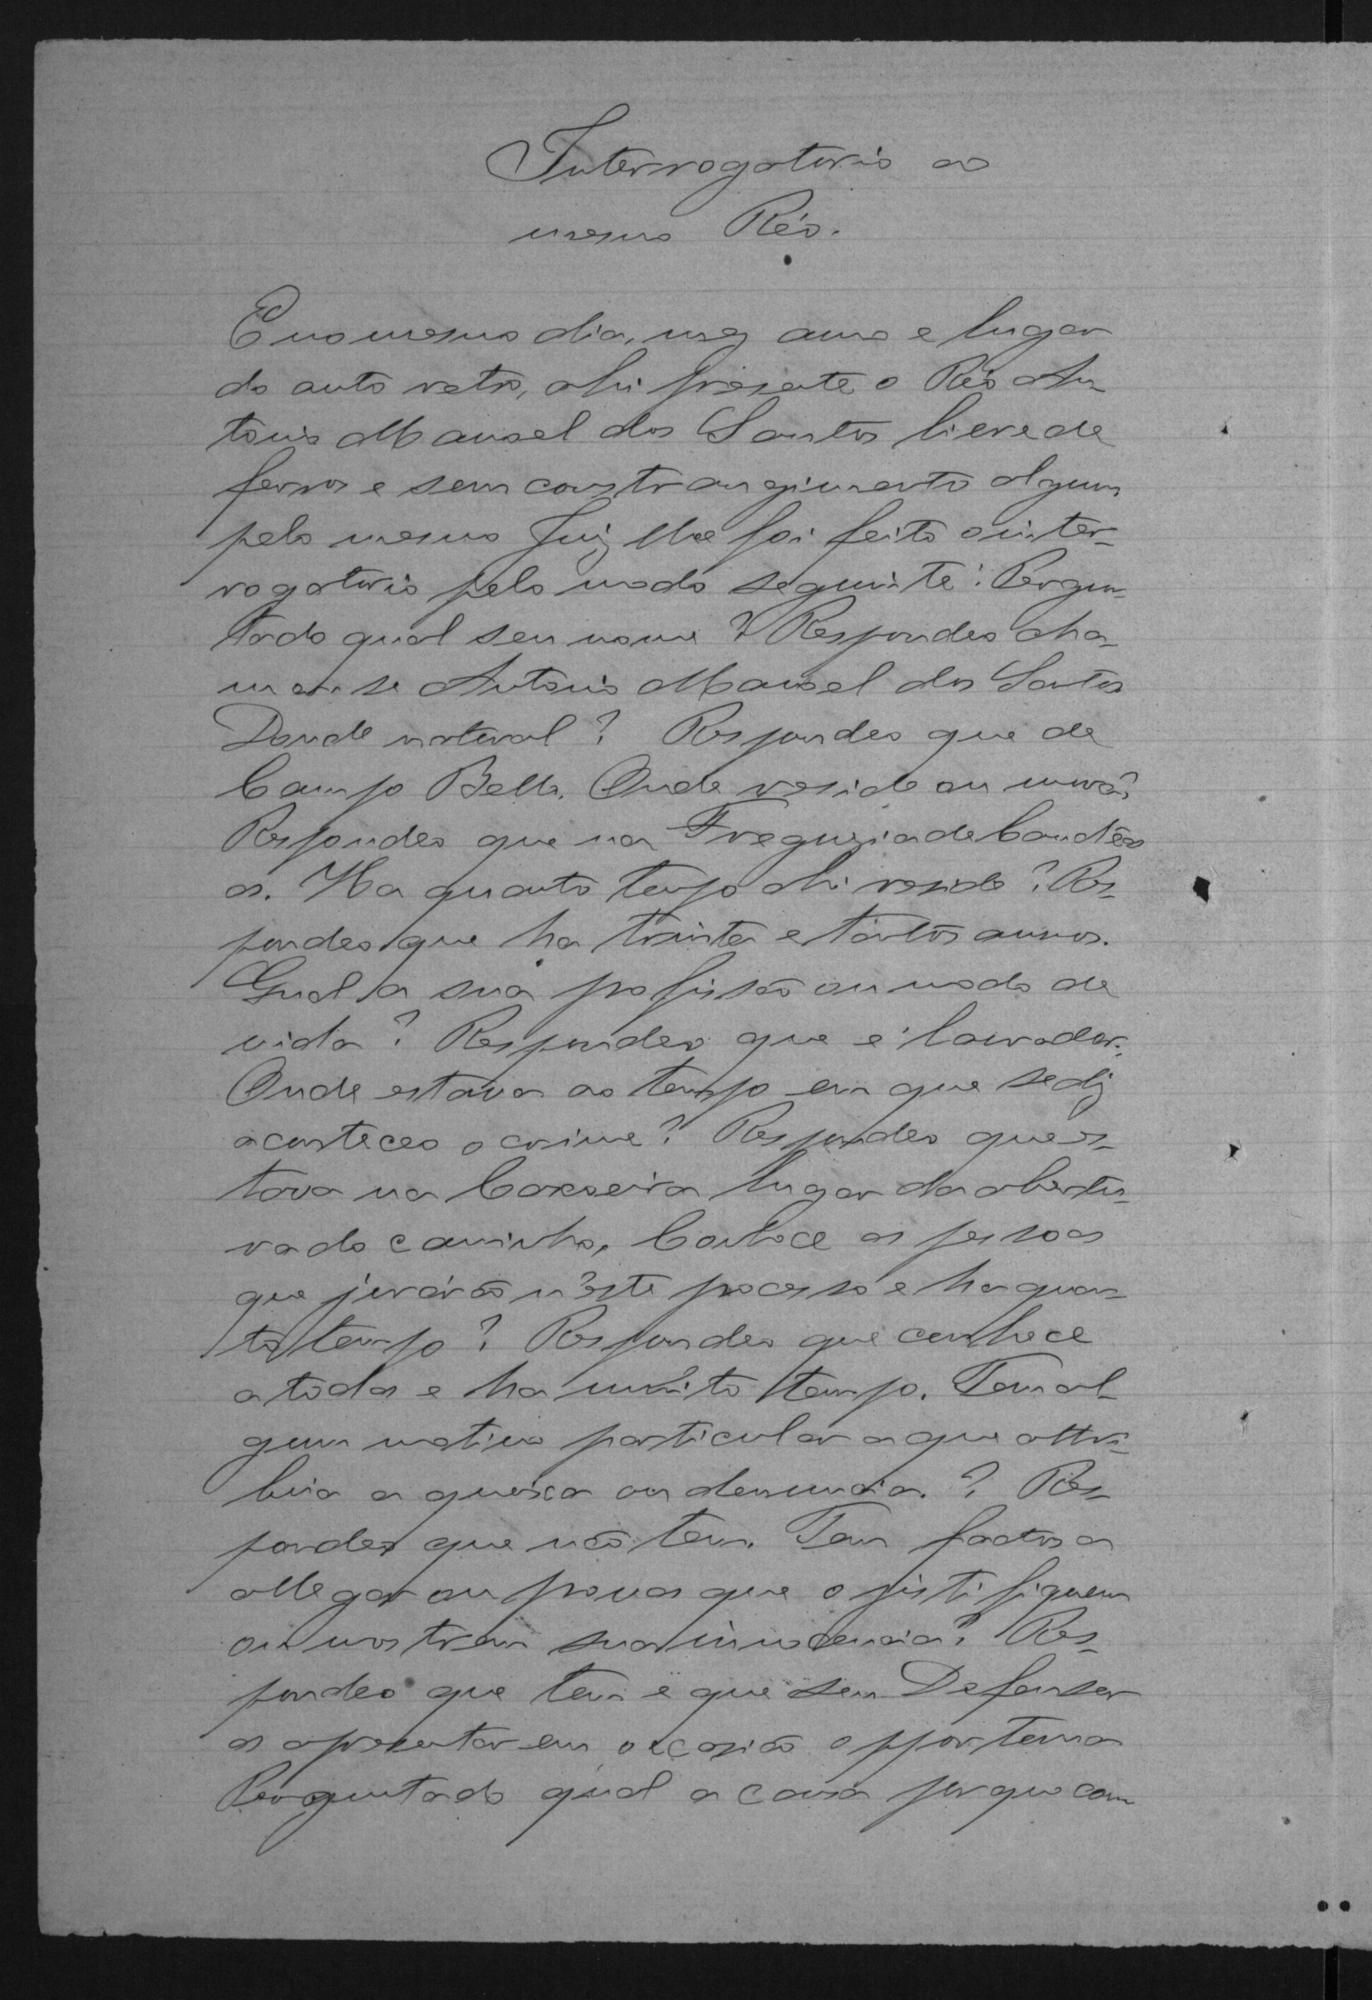 Interrogatorio ao
mesmo Réo.
E no mesmo dia, mez anno e lugar
do auto retro, ahi presente o Réo An-
tonio Manoel dos Santos livre de
ferros e sem constrangimento algum
pelo mesmo Juiz lhe foi feito o inter-
rogatorio pelo modo seguinte: Pergun-
tado qual seu nome? Respondeo cha-
mar-se Antonio Manoel dos Santos
Donde natural? Respondeo que de
Campo Bello. Onde reside ou mora?
Respondeo que na Freguezia de Candêa
as. Ha quanto tempo ahi reside? Res-
pondeo que ha trinta e tantos annos.
Qual a sua profissão ou modo de
vida? Respondeo que é lavrador.
Onde estava ao tempo em que se diz
aconteceo o crime? Respondeo que es-
tava na Caxoeira lugar da abertu-
ra do caminho. Conhece as pessoas
que jurárão n'este processo e ha quan-
to tempo? Respondeo que conhece
a todas e ha muito tempo. Tem al-
gum motivo particular a que attri-
bua a queixa ou denuncia.? Res-
pondeo que não tem. Tem factos a
allegar ou provas que o justifiquem
ou mostrem sua innocencia? Res-
pondeo que tem e que seu Defensor
as apresentar em occasião opportuna
Perguntado qual a causa porque com